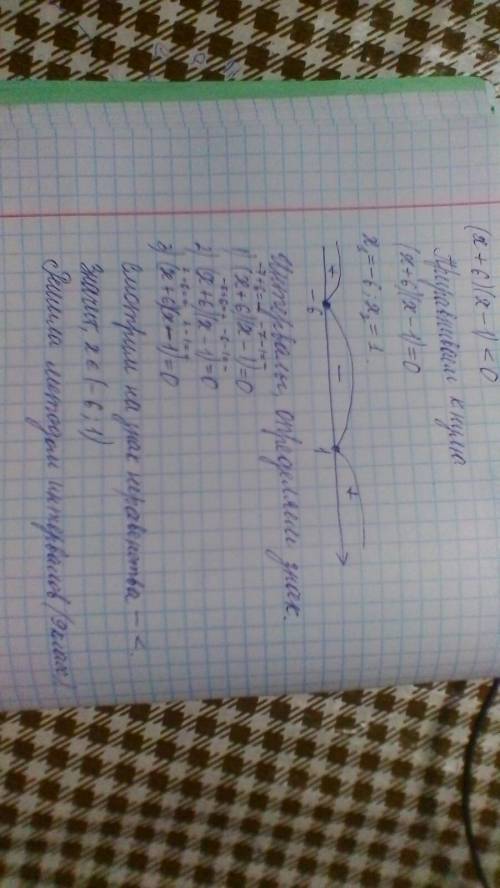 (x+6)(x-1)<0
Приравниваем к нулю
(x+6)(x-1)=0
x₁=-6; x₂=1.
+ - +
-6 1
Интервалы, определяем знак.
1) (x+6)(x-1)=0
2) (x+6)(x-1)=0
3) (x+6)(x-1)=0
Смотрим на знак неравенства - <.
Значит, x∈(-6;1)
Решила методом интервалов (9 класс)